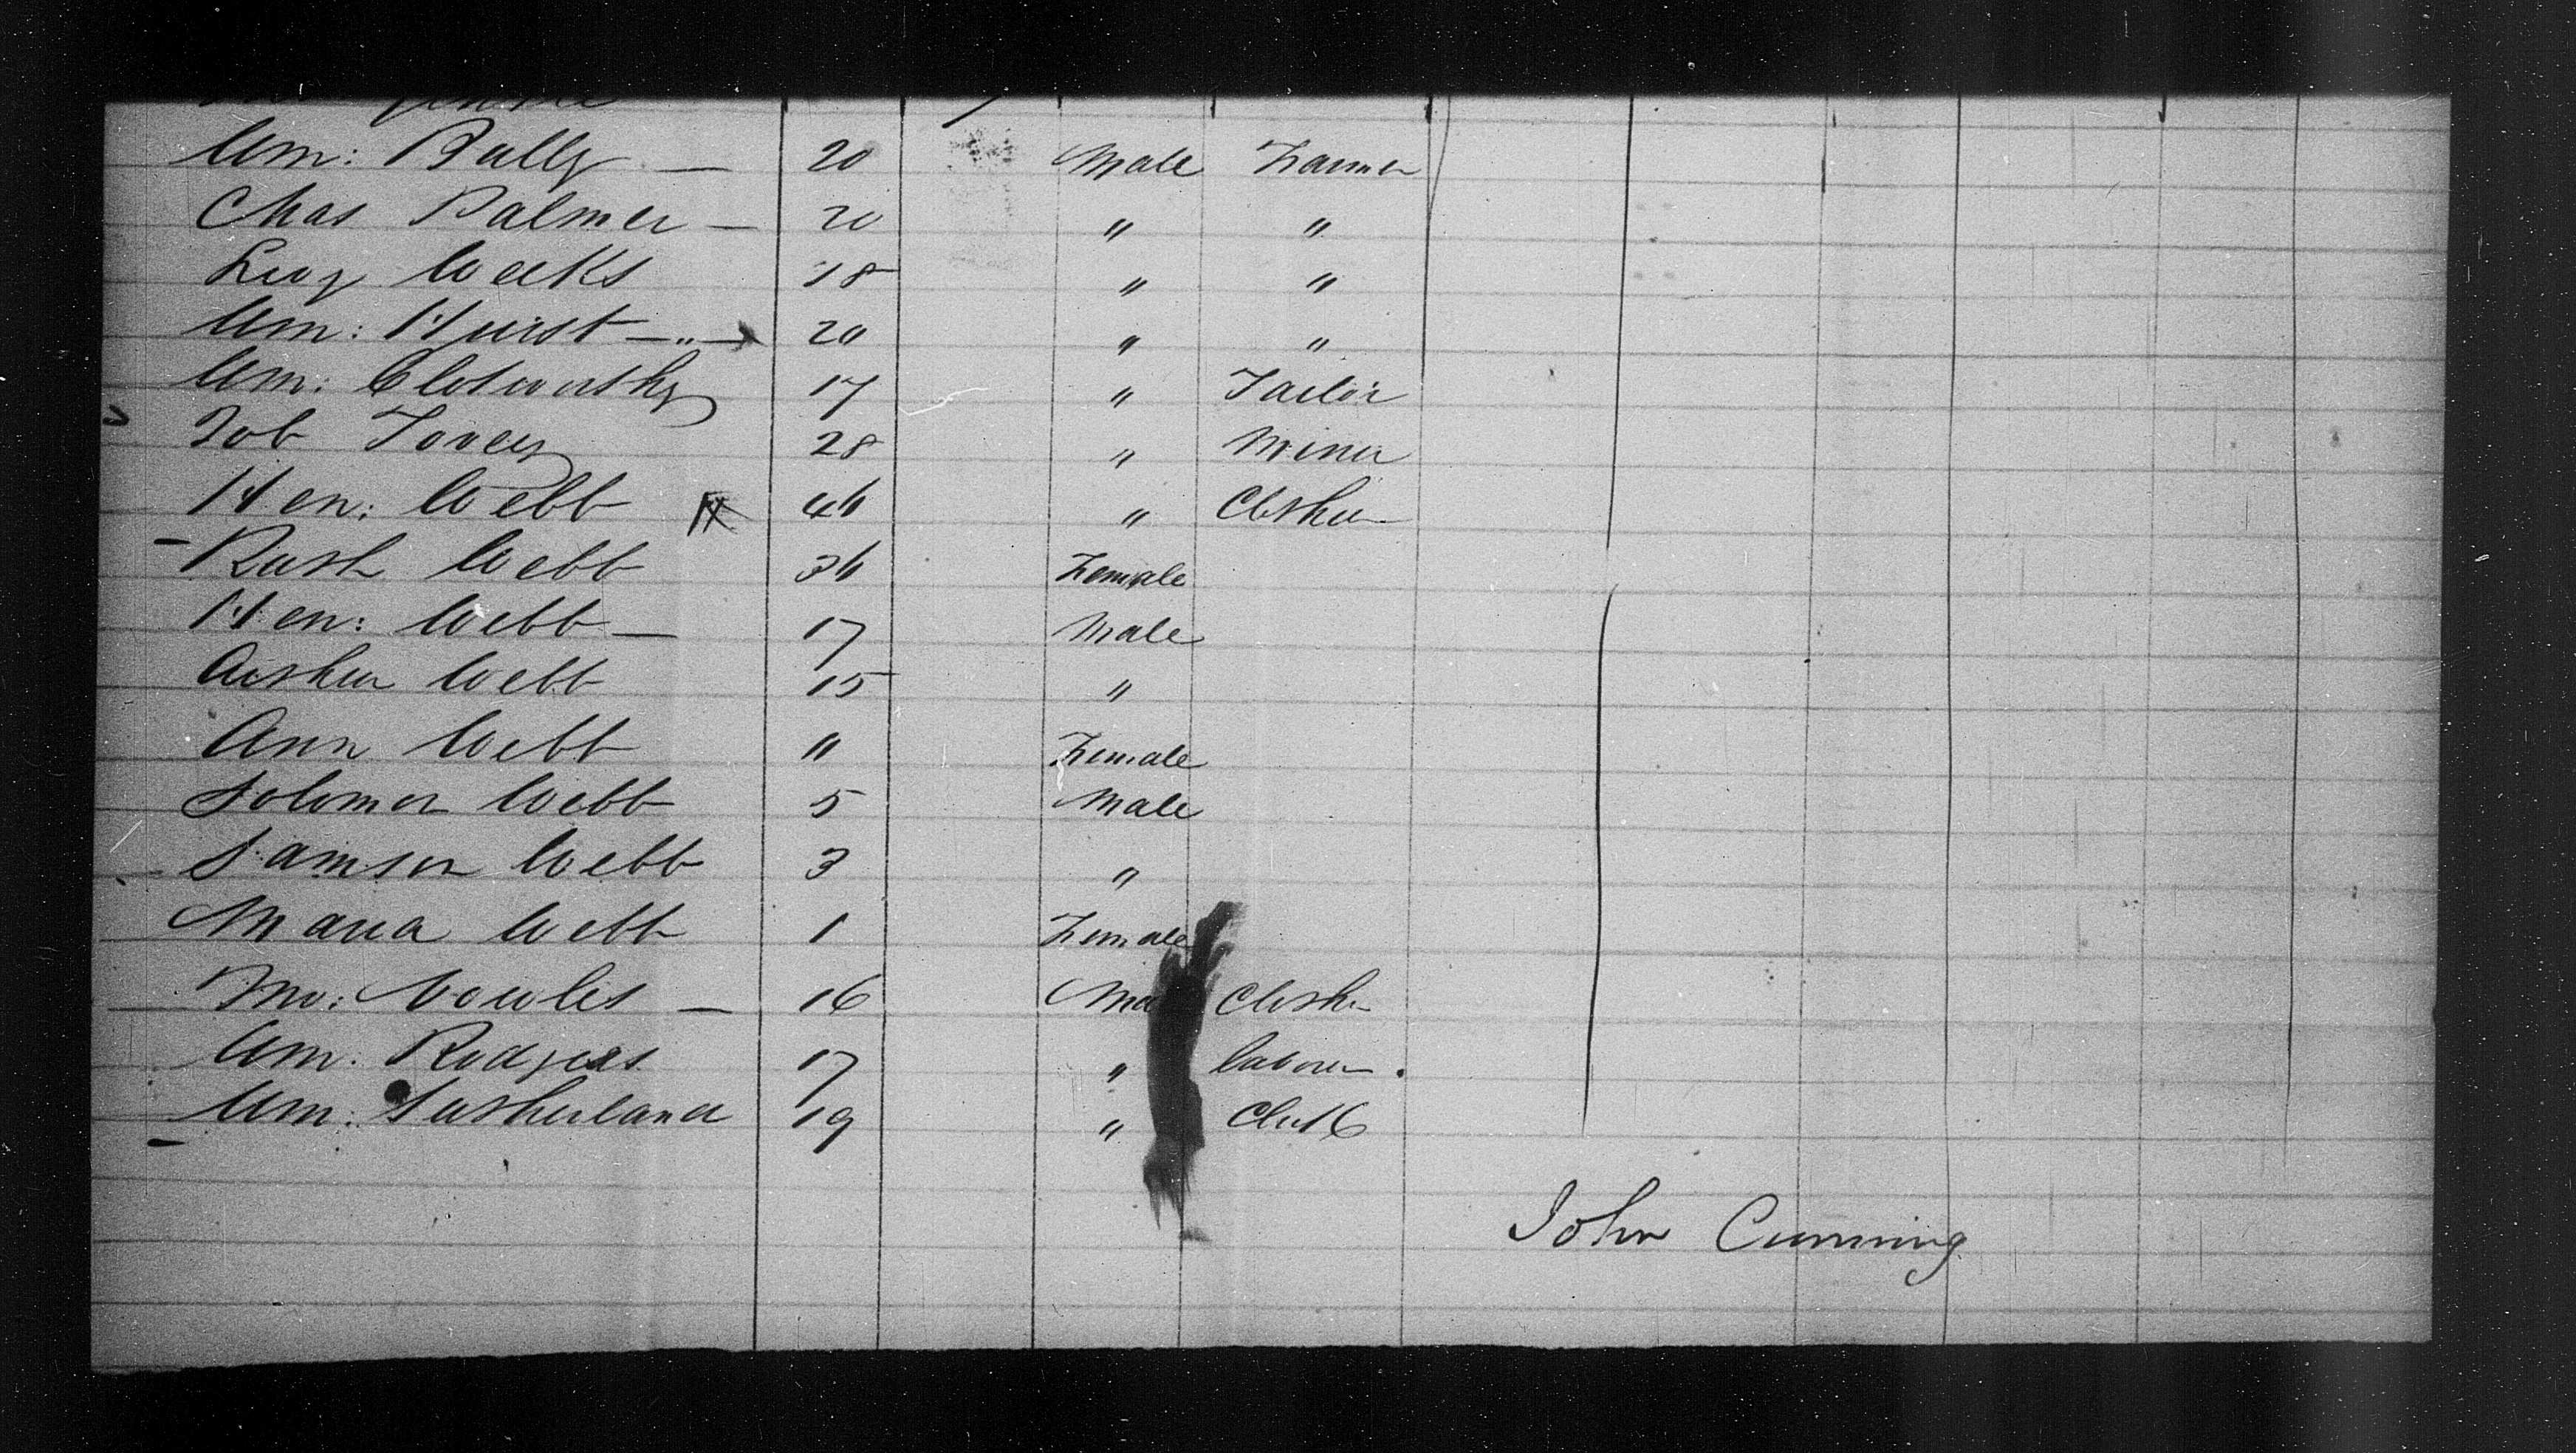 Wm: Bully — 20 Male Farmer
Chas Palmer — 20 " "
Levy Weeks 18 " "
Wm: Hurst — " — 20 " "
Wm: Clotworthy 17 " Tailor
Job Tovey 28 " Miner
Hen: Webb 46 " Clothier
Ruth Webb 36 Female
Hen: Webb — 17 Male
Arthur Webb 15 "
Ann Webb 11 Female
Solomon Webb 5 Male
Samson Webb 3 "
Maria Webb 1 Female
Vowles — 16 Clothier
Wm: Rodgers 17 " laborer
Wm: Sutherland 19 " Clerk
John Cumming